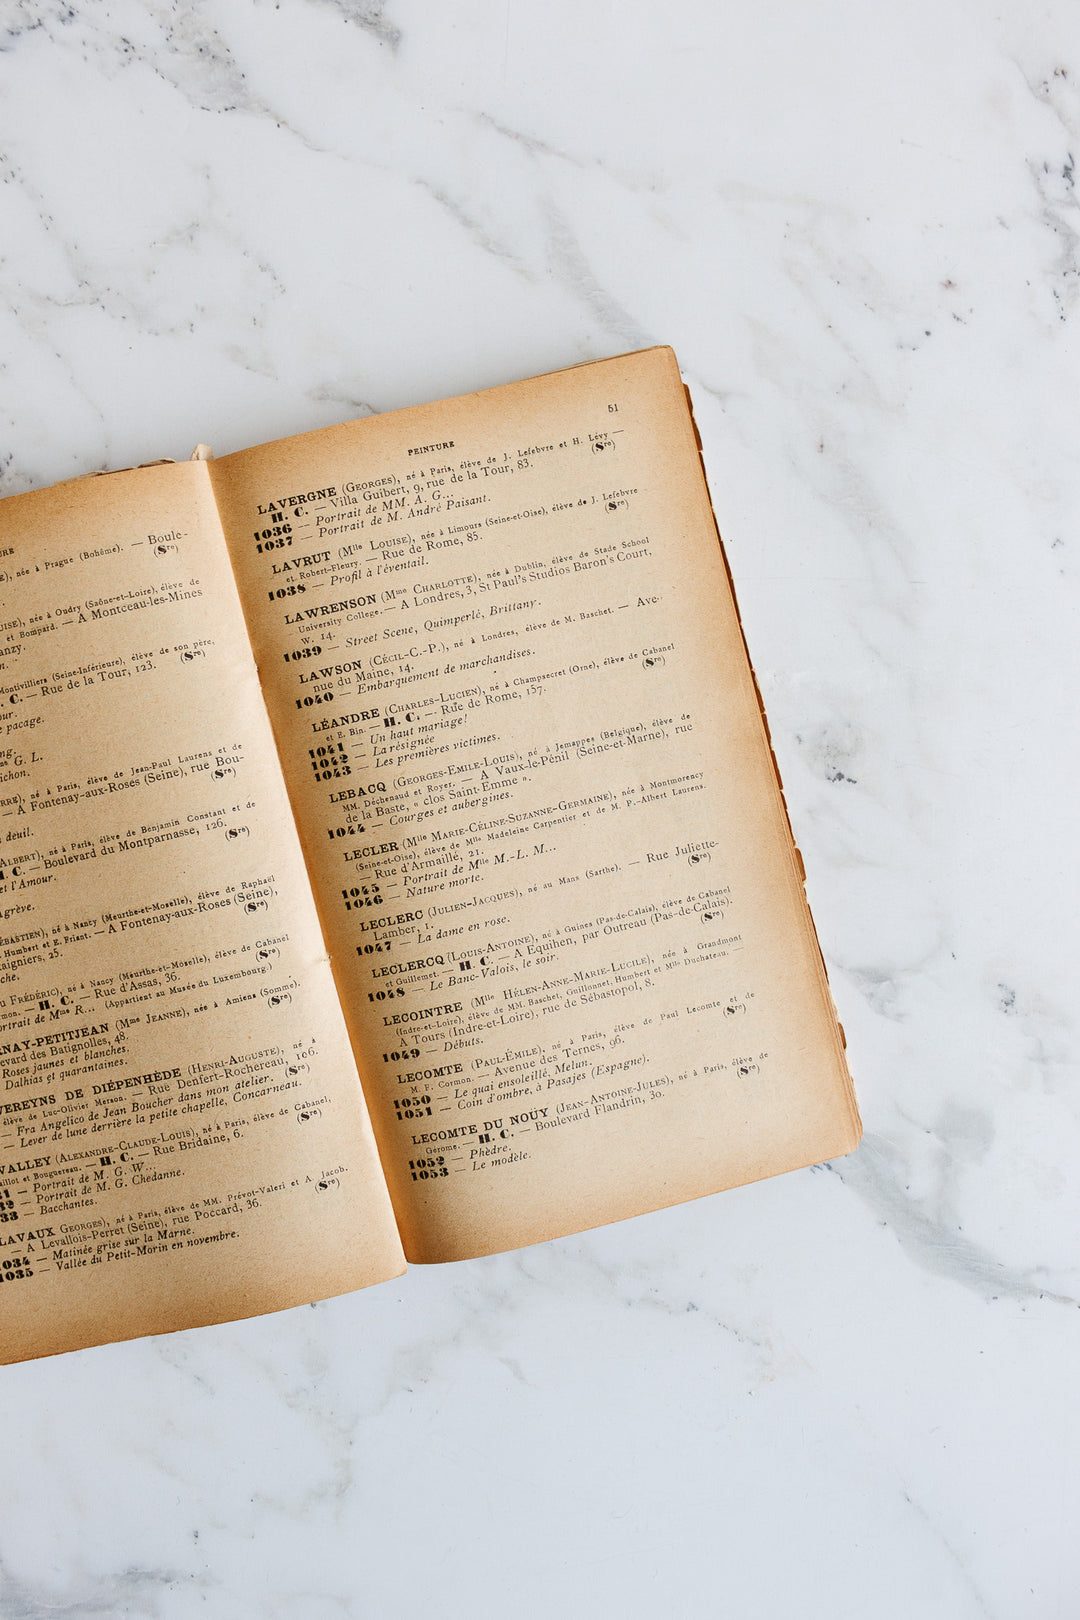 URE
née à Prague (Bohême). — Boule-
(Sre)
UISE), née à Oudry (Saône-et-Loire), élève de
et Bompard. — A Montceau-les-Mines
anzy.
Montivilliers (Seine-Inférieure), élève de son père,
C. — Rue de la Tour, 123. (Sre)
our.
pacage.
G. L.
ichon.
né à Paris, élève de Jean-Paul Laurens et de
— A Fontenay-aux-Roses (Seine), rue Bou-
(Sre)
deuil.
ALBERT), né à Paris, élève de Benjamin Constant et de
C. — Boulevard du Montparnasse, 126.
(Sre)
et l'Amour.
Agrève.
ÉBASTIEN), né à Nancy (Meurthe-et-Moselle), élève de Raphaël
Humbert et E. Friant. — A Fontenay-aux-Roses (Seine),
aigniers, 25. (Sre)
che.
U FRÉDÉRIC), né à Nancy (Meurthe-et-Moselle), élève de Cabanel
mon. — H. C. — Rue d'Assas, 36. (Sre)
ortrait de Mme R... (Appartient au Musée du Luxembourg.)
RNAY-PETITJEAN (Mme JEANNE), née à Amiens (Somme).
evard des Batignolles, 48. (Sre)
Roses jaunes et blanches.
Dalhias et quarantaines.
VEREYNS DE DIÉPENHÈDE (HENRI-AUGUSTE), né à
élève de Luc-Olivier Merson. — Rue Denfert-Rochereau, 106.
— Fra Angelico de Jean Boucher dans mon atelier. (Sre)
— Lever de lune derrière la petite chapelle, Concarneau.
VALLEY (ALEXANDRE-CLAUDE-LOUIS), né à Paris, élève de Cabanel,
aillot et Bouguereau. — H. C. — Rue Bridaine, 6. (Sre)
31 — Portrait de M. G. W...
32 — Portrait de M. G. Chedanne.
33 — Bacchantes.
LAVAUX GEORGES), né à Paris, élève de MM. Prévot-Valeri et A. Jacob.
— A Levallois-Perret (Seine), rue Poccard, 36. (Sre)
1034 — Matinée grise sur la Marne.
1035 — Vallée du Petit-Morin en novembre.
PEINTURE 51
LAVERGNE (GEORGES), né à Paris, élève de J. Lefebvre et H. Lévy —
H. C. — Villa Guibert, 9, rue de la Tour, 83. (Sre)
1036 — Portrait de MM. A. G...
1037 — Portrait de M. André Paisant.
LAVRUT (Mlle LOUISE), née à Limours (Seine-et-Oise), élève de J. Lefebvre
et Robert-Fleury. — Rue de Rome, 85. (Sre)
1038 — Profil à l'éventail.
LAWRENSON (Mme CHARLOTTE), née à Dublin, élève de Stade School
University College. — A Londres, 3, St Paul's Studios Baron's Court,
W. 14.
1039 — Street Scene, Quimperlé, Brittany.
LAWSON (CÉCIL-C.-P.), né à Londres, élève de M. Baschet. — Ave-
nue du Maine, 14.
1040 — Embarquement de marchandises.
LÉANDRE (CHARLES-LUCIEN), né à Champsecret (Orne), élève de Cabanel
et E. Bin. — H. C. — Rue de Rome, 157. (Sre)
1041 — Un haut mariage!
1042 — La résignée
1043 — Les premières victimes.
LEBACQ (GEORGES-EMILE-LOUIS), né à Jemappes (Belgique), élève de
MM. Déchenaud et Royer. — A Vaux-le-Pénil (Seine-et-Marne), rue
de la Baste, « clos Saint-Emme ».
1044 — Courges et aubergines.
LECLER (Mlle MARIE-CÉLINE-SUZANNE-GERMAINE), née à Montmorency
(Seine-et-Oise), élève de Mlle Madeleine Carpentier et de M. P.-Albert Laurens.
— Rue d'Armaillé, 21.
1045 — Portrait de Mlle M.-L. M...
1046 — Nature morte.
LECLERC (JULIEN-JACQUES), né au Mans (Sarthe). — Rue Juliette-
Lamber, 1. (Sre)
1047 — La dame en rose.
LECLERCQ (LOUIS-ANTOINE), né à Guines (Pas-de-Calais), élève de Cabanel
et Guillemet. — H. C. — A Equihen, par Outreau (Pas-de-Calais).
1048 — Le Banc-Valois, le soir. (Sre)
LECOINTRE (Mlle HÉLEN-ANNE-MARIE-LUCILE), née à Grandmont
(Indre-et-Loire), élève de MM. Baschet, Guillonnet, Humbert et Mlle Duchateau. —
A Tours (Indre-et-Loire), rue de Sébastopol, 8.
1049 — Débuts.
LECOMTE (PAUL-ÉMILE), né à Paris, élève de Paul Lecomte et de
M. F. Cormon. — Avenue des Ternes, 96. (Sre)
1050 — Le quai ensoleillé, Melun.
1051 — Coin d'ombre, à Pasajes (Espagne).
LECOMTE DU NOÜY (JEAN-ANTOINE-JULES), né à Paris, élève de
Gérome. — H. C. — Boulevard Flandrin, 30. (Sre)
1052 — Phèdre.
1053 — Le modèle.